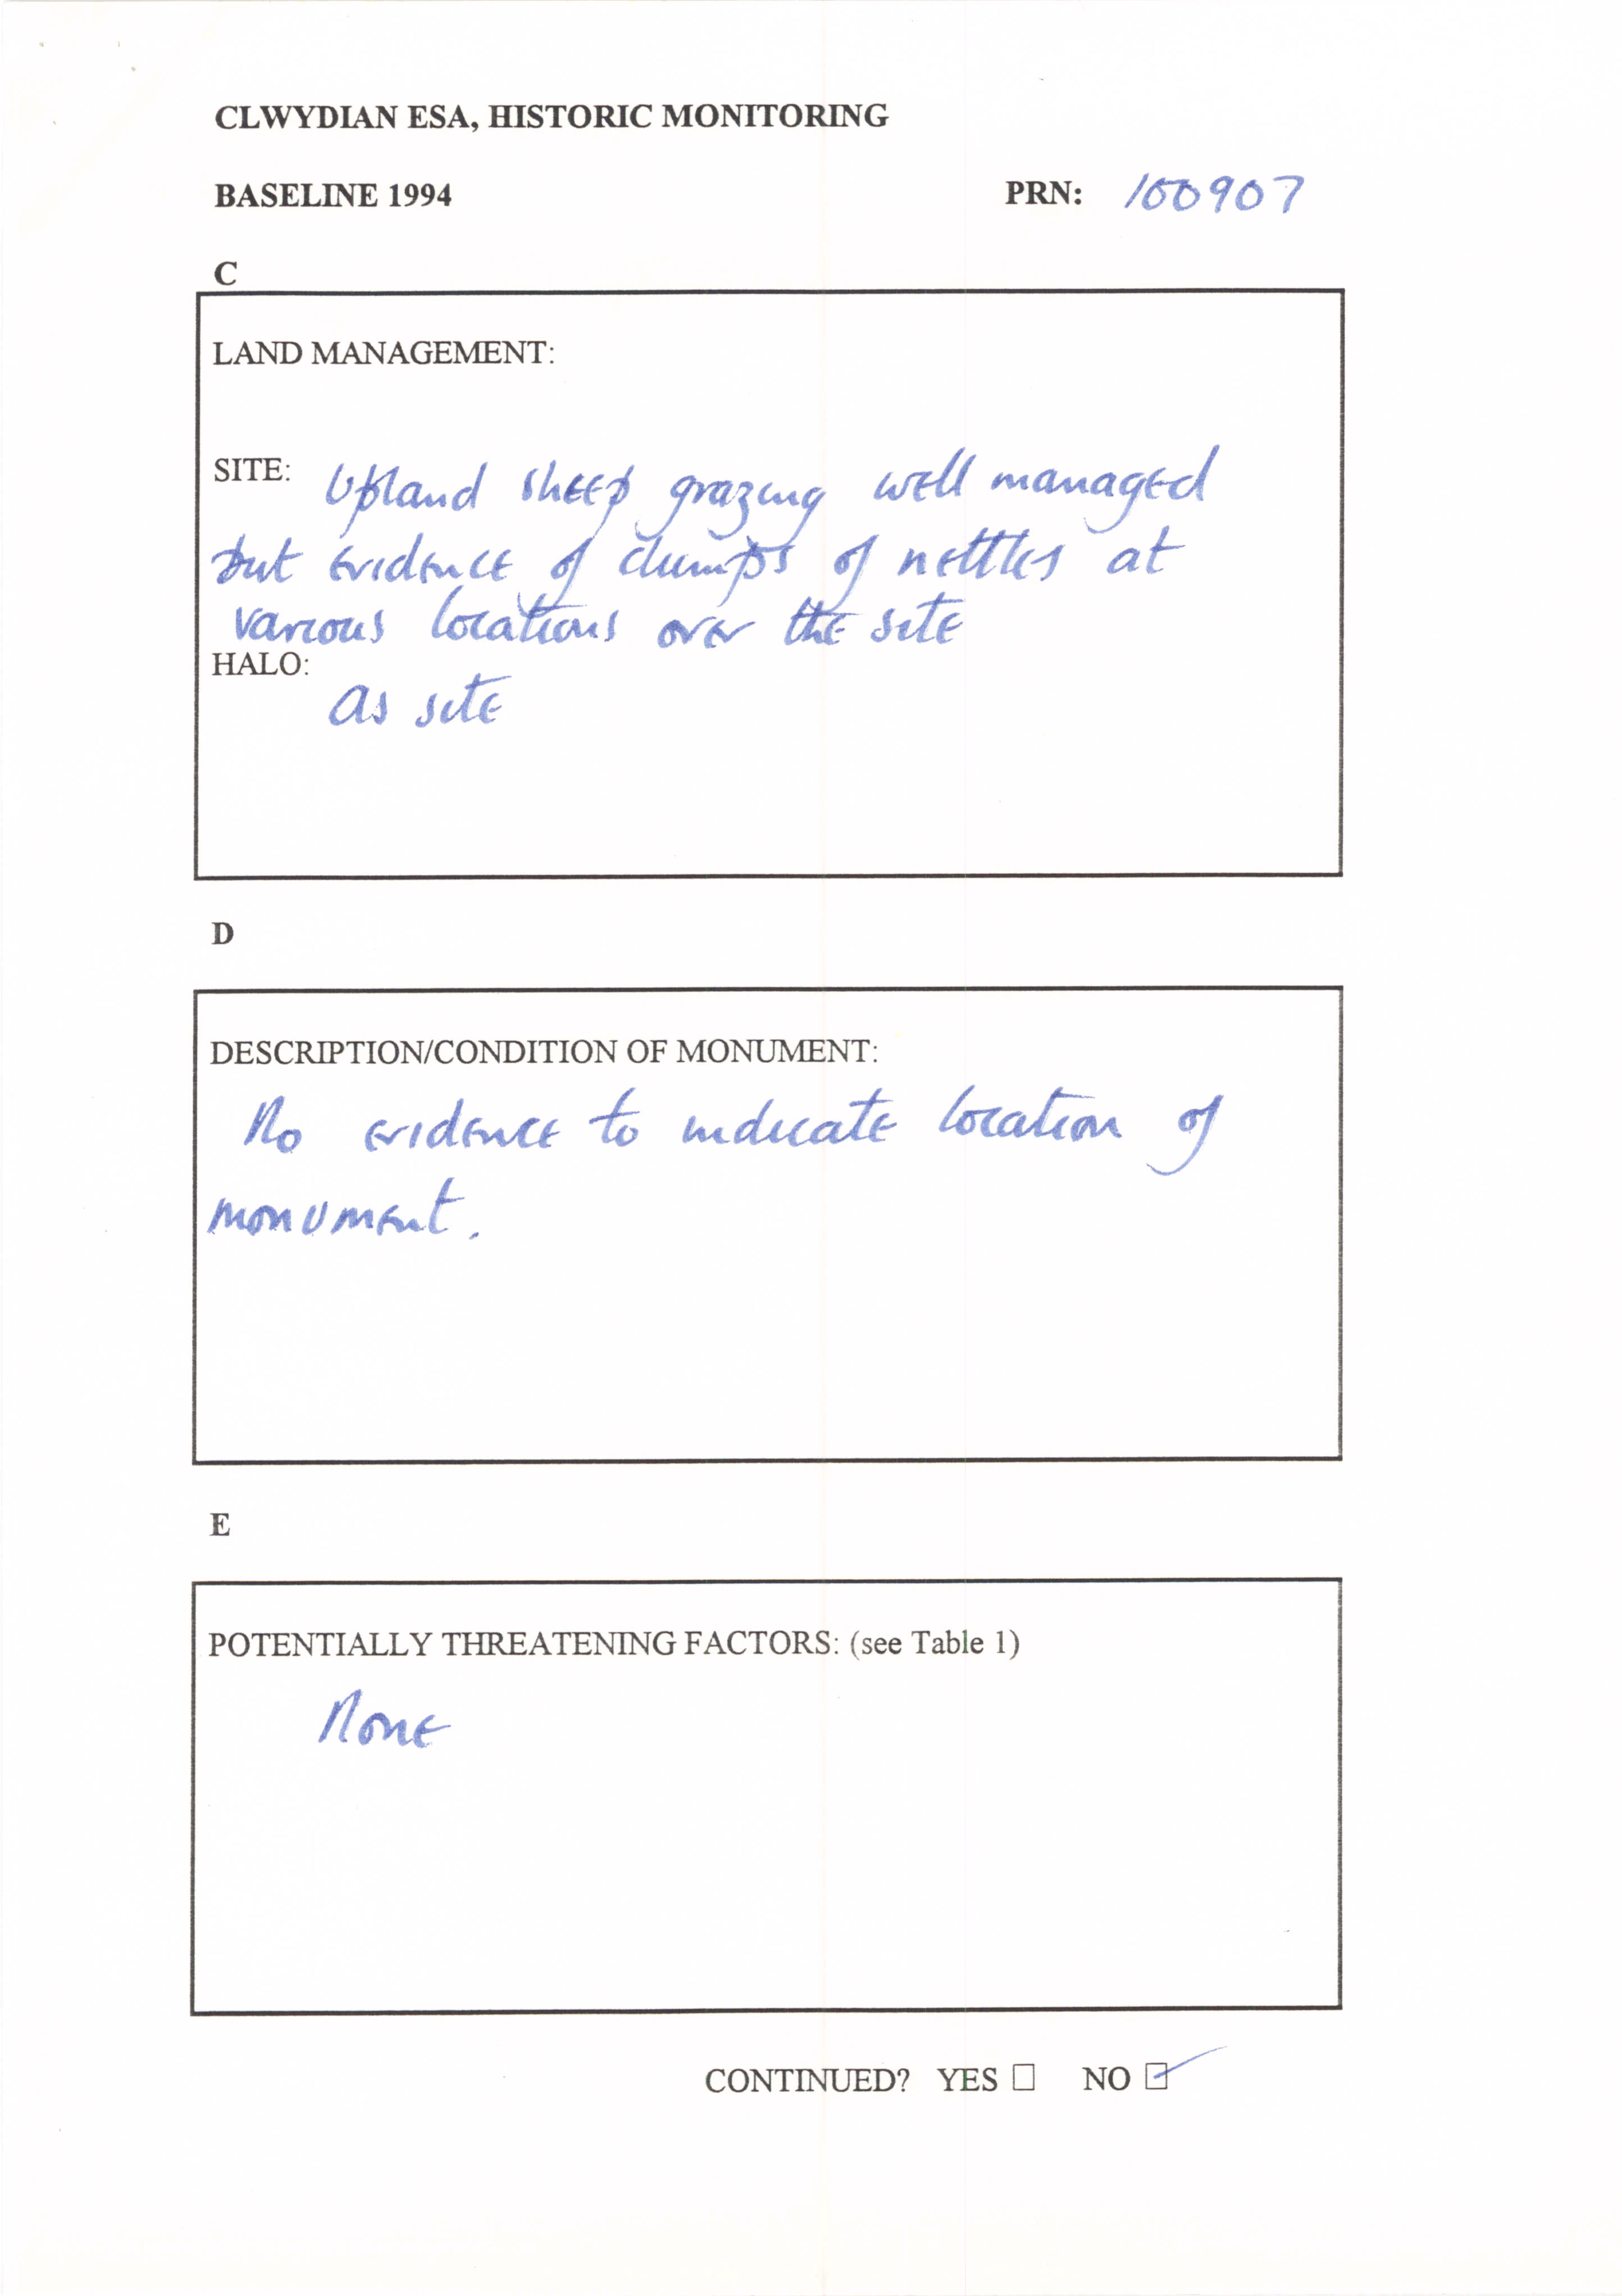 CLWYDIAN ESA, HISTORIC MONITORING
BASELINE 1994 PRN: 100907
C
LAND MANAGEMENT:
SITE: Upland sheep grazing well managed
but evidence of clumps of nettles at
various locations over the site
HALO:
As site
D
DESCRIPTION/CONDITION OF MONUMENT:
No evidence to indicate location of
monument.
E
POTENTIALLY THREATENING FACTORS: (see Table 1)
None
CONTINUED? YES ☐ NO ☑